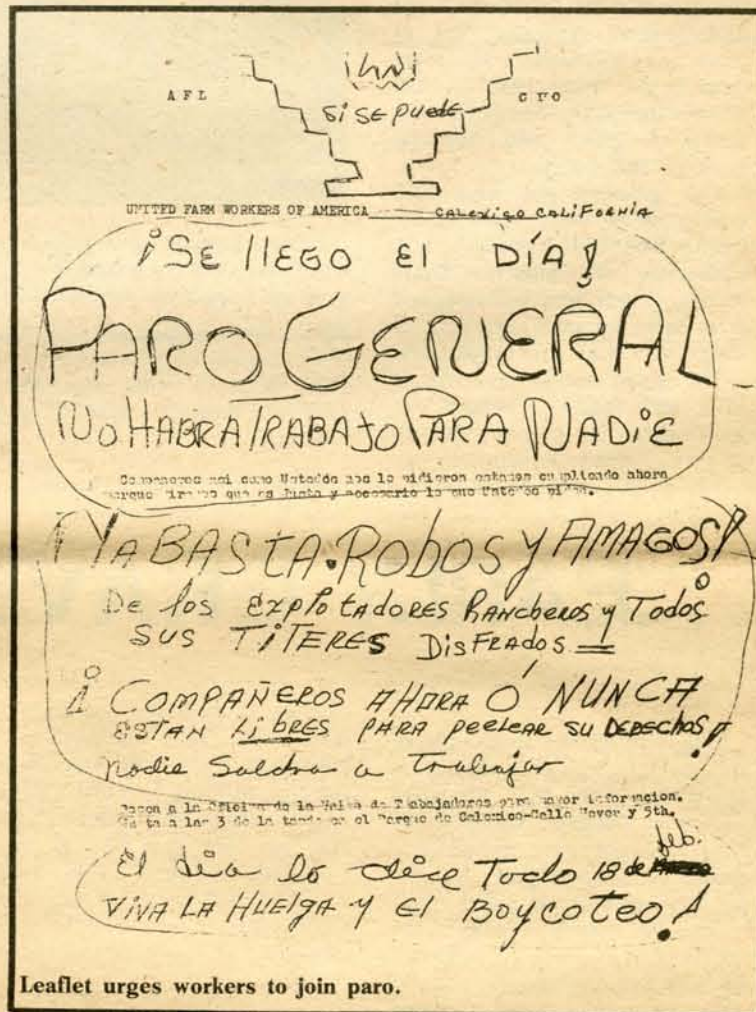 AFL CIO
Si SE PUEDE
UNITED FARM WORKERS OF AMERICA CALEXICO CALIFORNIA
¡SE llEGO El DÍA!
PARO GENERAL
NO HABRA TRABAJO PARA NADiE
Companeros asi como Ustedes nos lo pidieron estamos cumpliendo ahora
porque vimos que es Justo y necesario lo que Ustedes piden.
¡YA BASTA. ROBOS y AMAGOS!
De los ExplotADORES RANCHEROS y TODOS
SUS TiTERES DisFRADOS
¡COMPAÑEROS AHORA Ó NUNCA
ESTAN LibRES PARA PELEAR SU DERECHOS!
Nadie Saldra a Trabajar
Pasen a la Oficina de la Union de Trabajadores para mayor informacion.
a las 3 de la tarde en el Parque de Calexico-Calle and 5th.
El dia lo dice Todo 18 de feb.
VIVA LA HUElgA Y El BOYCOTEO!
Leaflet urges workers to join paro.